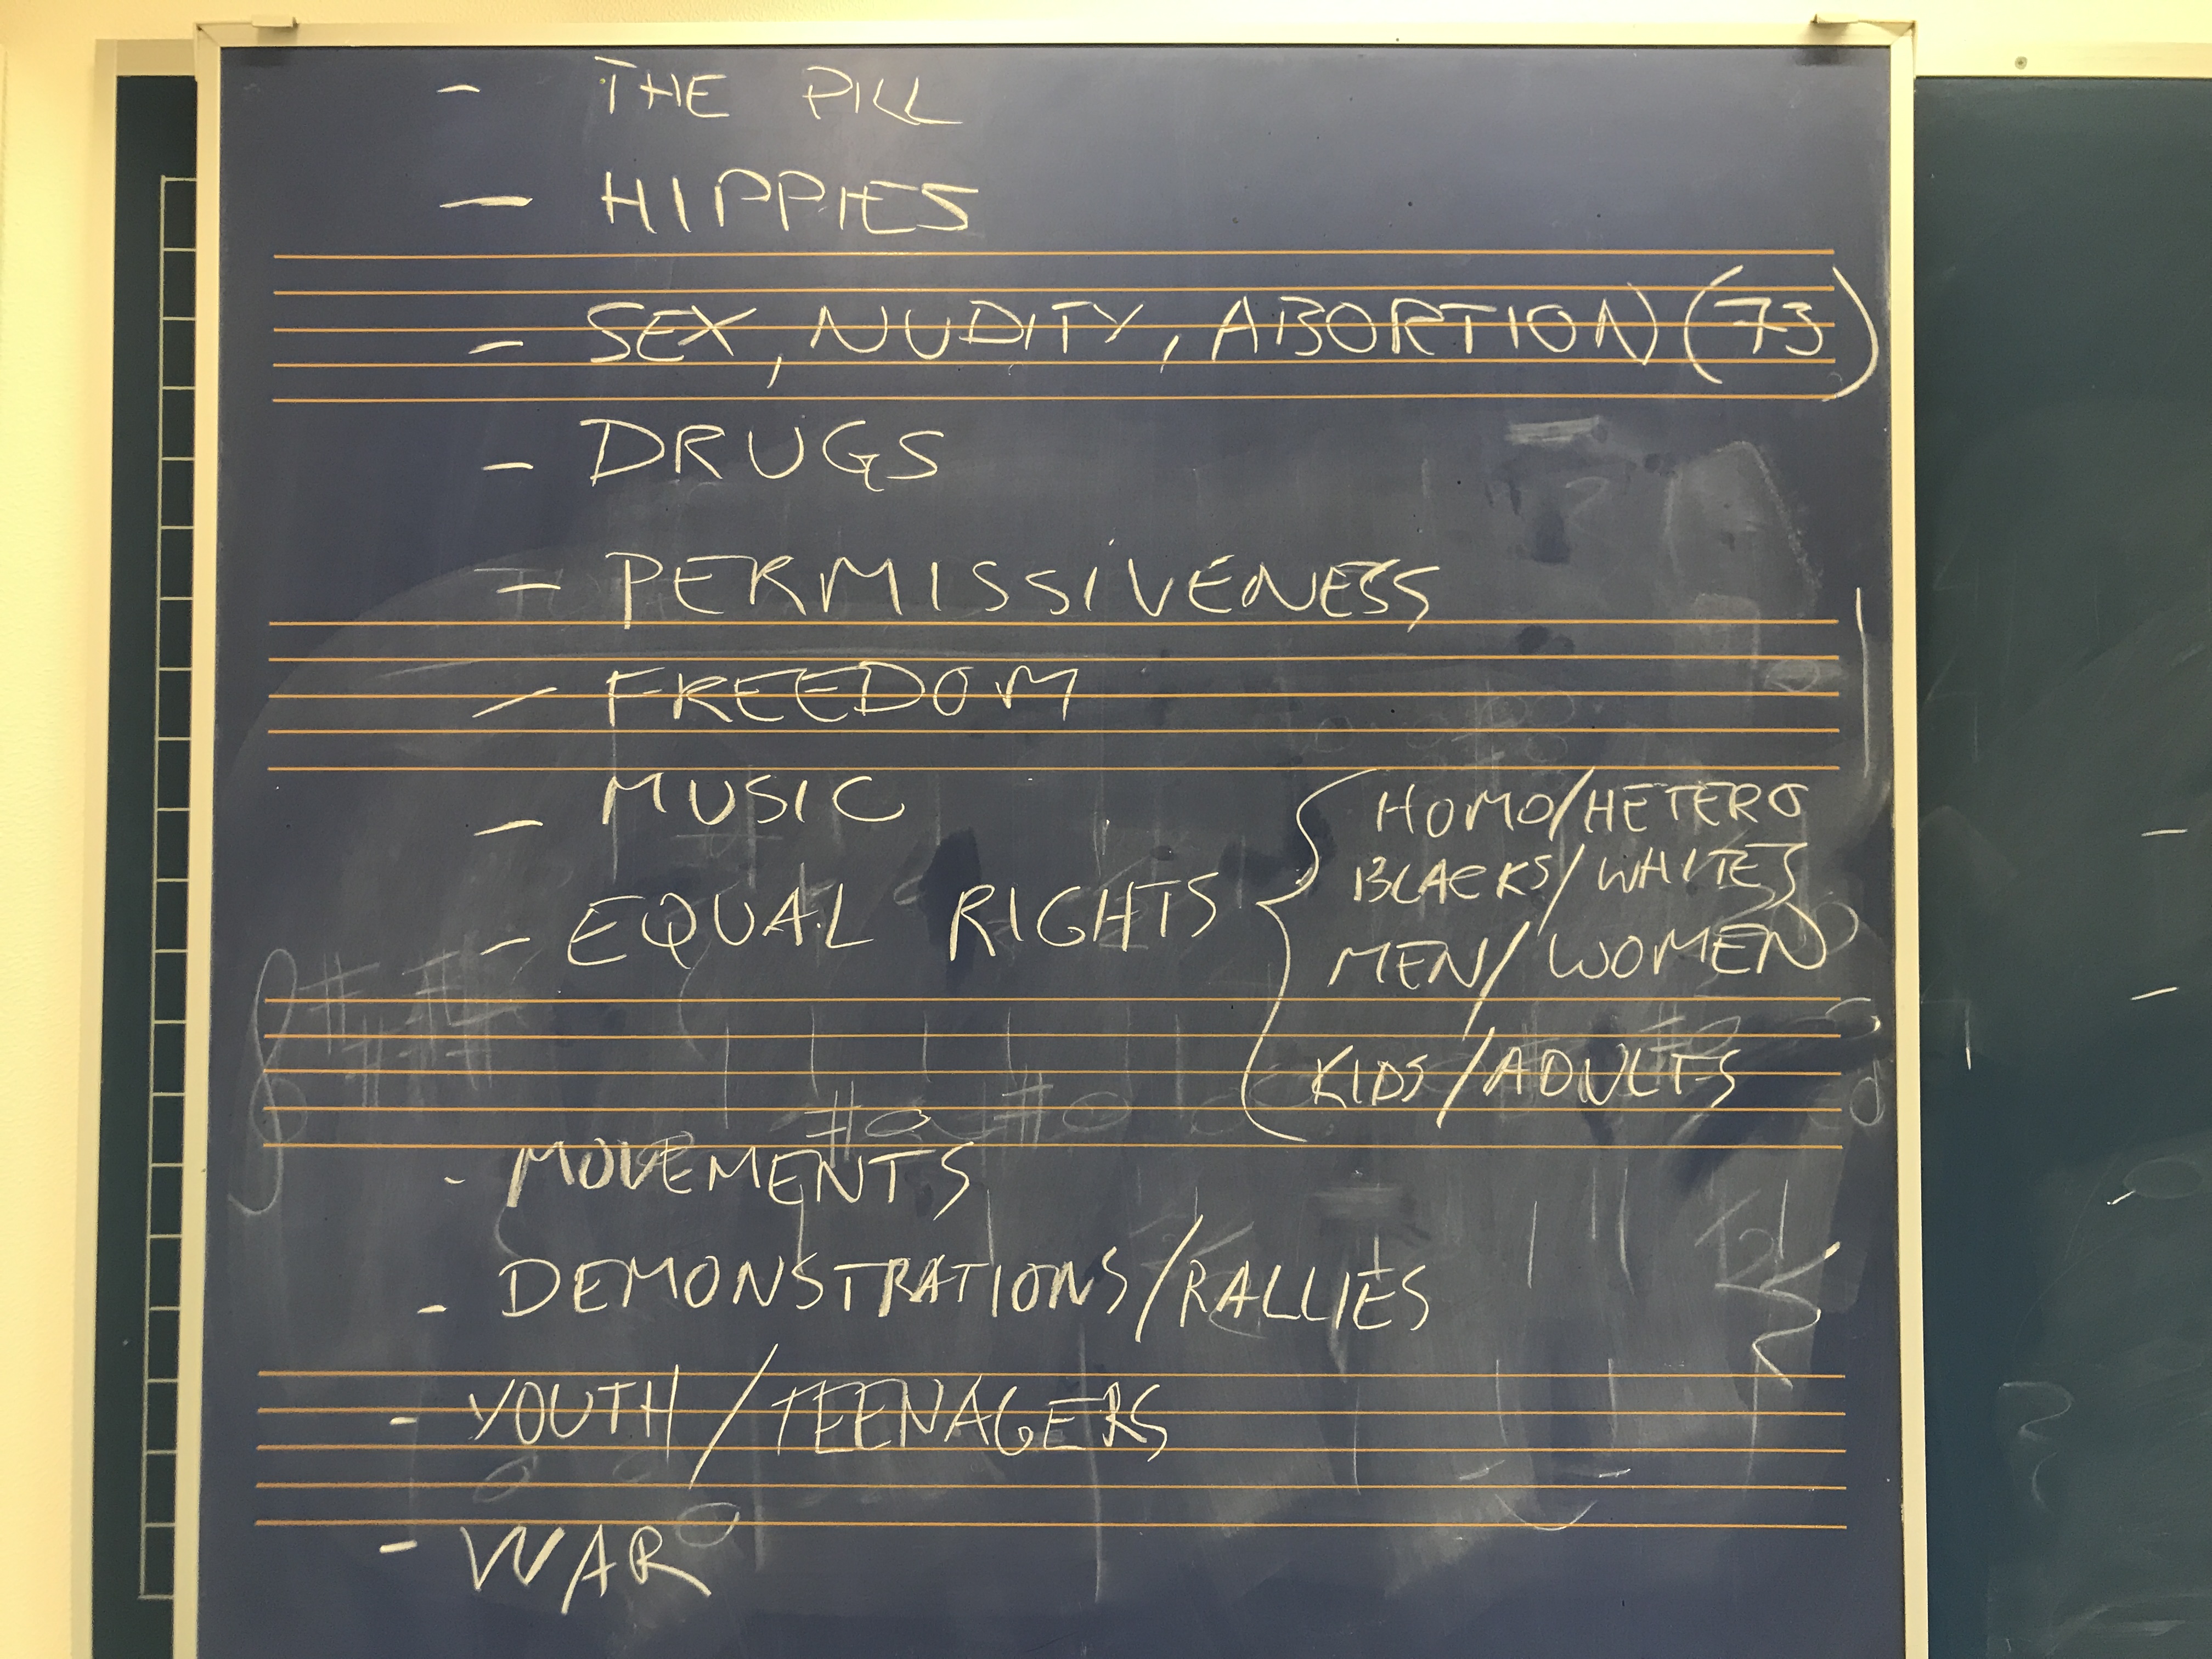 - THE PILL
- HIPPIES
- SEX, NUDITY, ABORTION) (73)
- DRUGS
- PERMISSIVENESS
- FREEDOM
- MUSIC
- EQUAL RIGHTS { HOMO/HETERO
BLACKS/WHITES
MEN/WOMEN
KIDS/ADULTS
- MOVEMENTS
- DEMONSTRATIONS/RALLIES
- YOUTH/TEENAGERS
- WAR